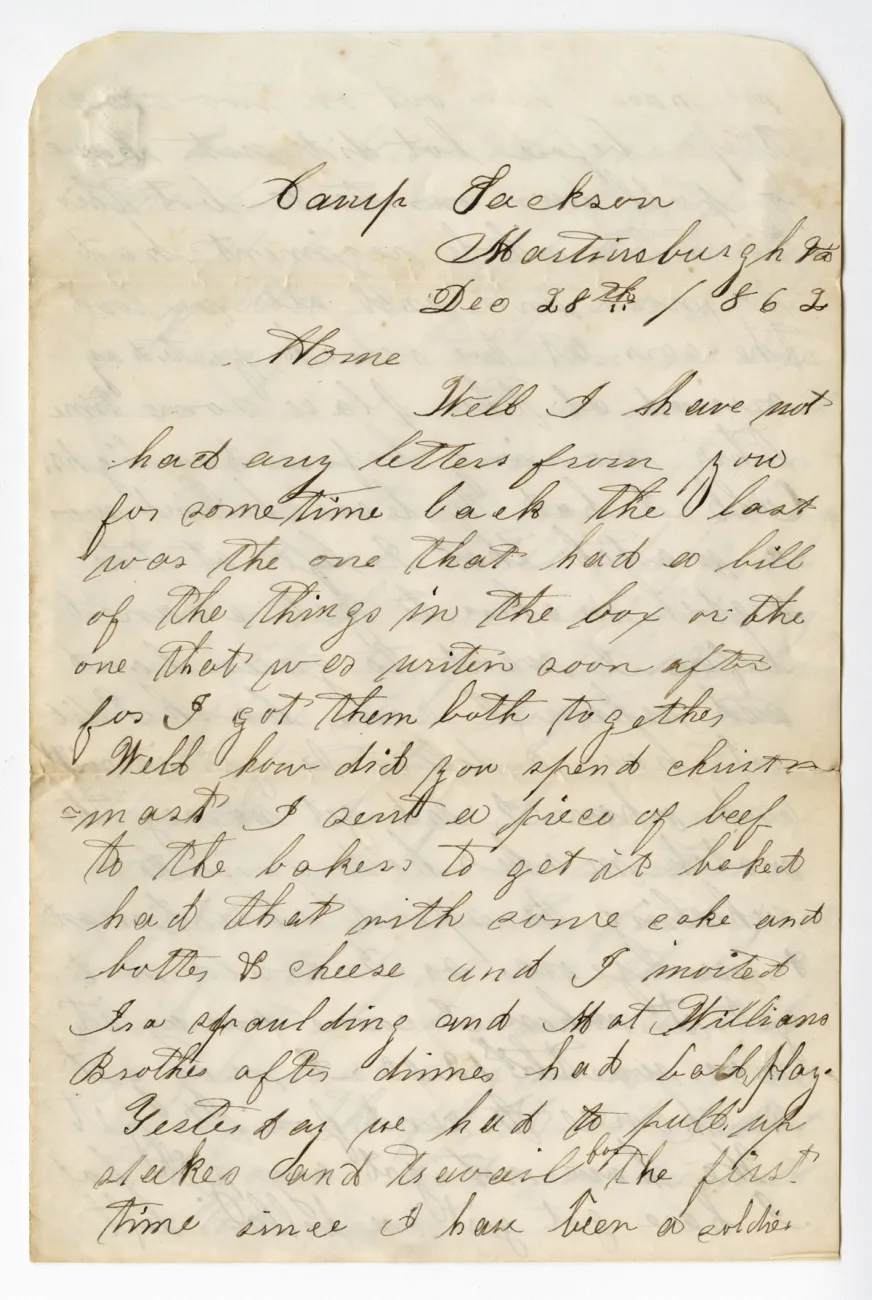 Camp Jackson
Martinsburgh Va
Dec 28th / 862
Home
Well I have not
had any letters from you
for sometime back the last
was the one that had a bill
of the things in the box or the
one that was writen soon after
for I got them both together
Well how did you spend christ-
-mast I sent a piece of beef
to the bakers to get it baked
had that with some cake and
botter & cheese and I invited
Ira spaulding and Mat Willians
Brother after dinner had ball play.
Yesterday we had to pull up
stakes and travail for the first
time since I have been a soldier